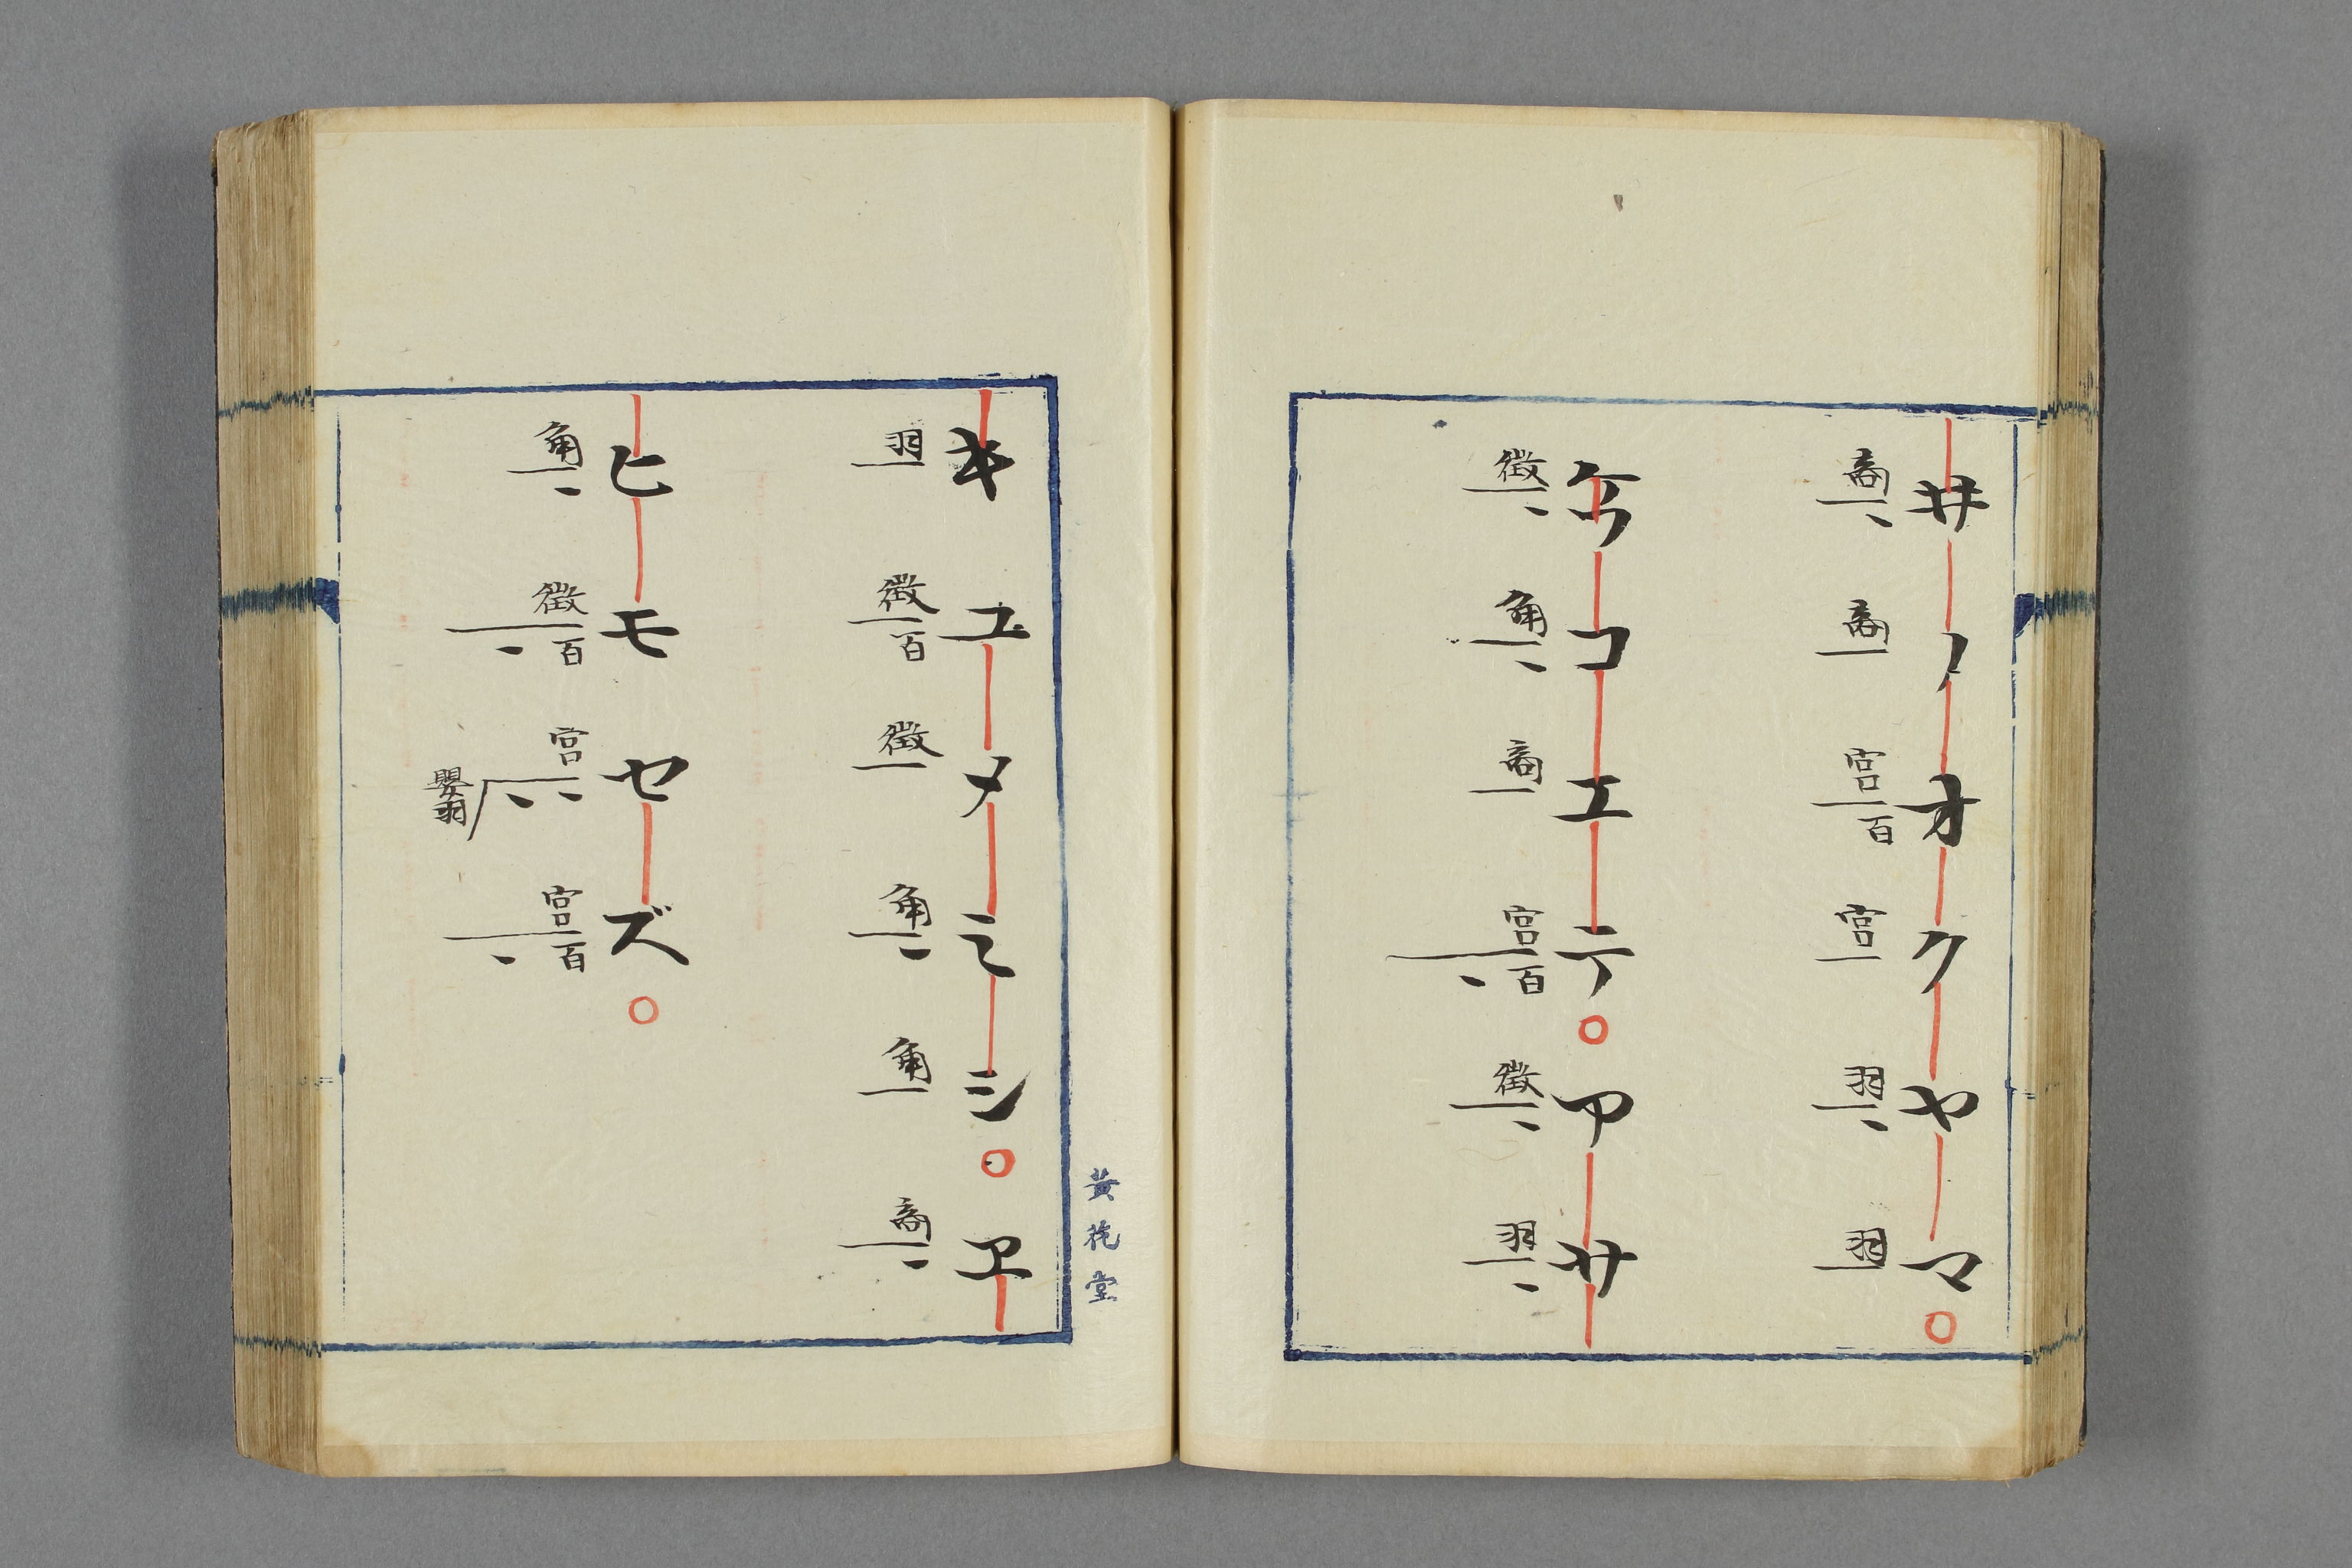 ヰノオククヤマ
商商宮百宮羽羽
ケフコエテアサ
徴角商宮百徴羽
キユメミシヱ
羽徴百徴角角商
ヒモセズ
角徴百宮嬰羽宮百
黄花堂